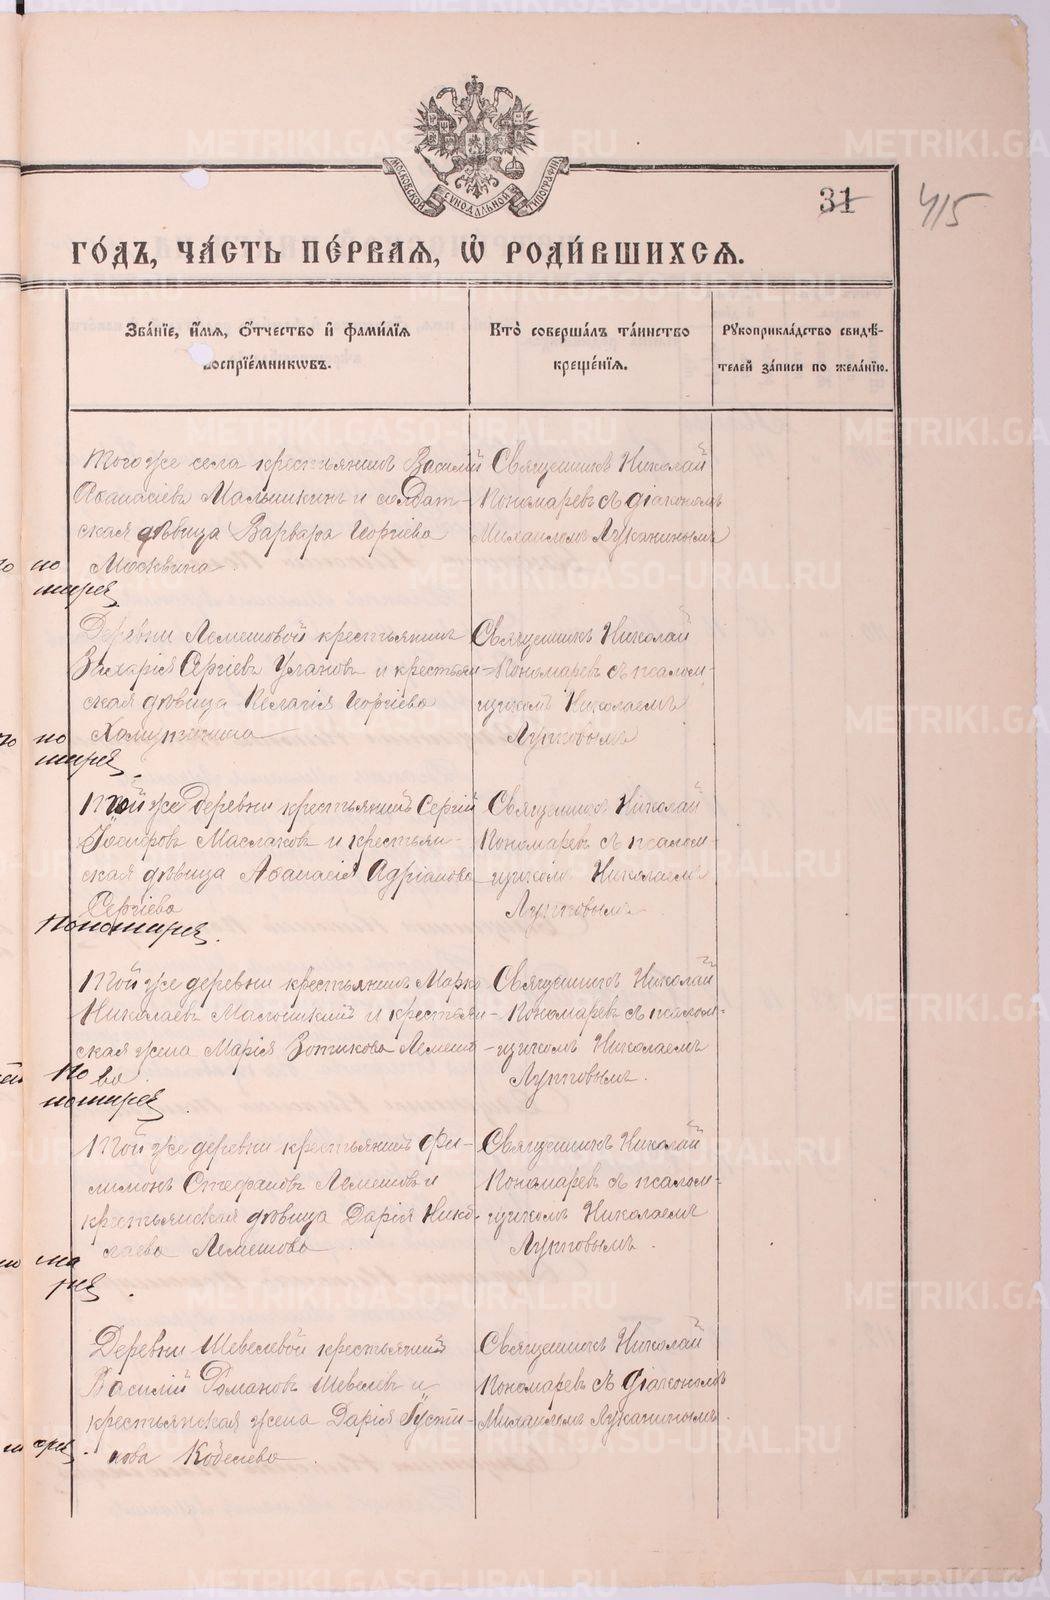 МОСКОВСКОЙ СѴНОДАЛЬНОЙ ТИПОГРАФІИ
31
415
ГО́ДЪ, ЧА́СТЬ ПЕ́РВАЯ, Ѡ҆ РОДИ́ВШИХСЯ.
Зва́нїе, и҆́мя, ѻ҆́тчество и҆ фами́лїя
воспрїе́мникѡвъ.
Кто̀ соверша́лъ та́инство
креще́нїя.
Рꙋкоприкла́дство свидѣ́-
телей за́писи по жела́нїю.
Тогоже села крестьянинъ Василій
Аѳанасіевъ Малышкинъ и солдат-
ская дѣвица Варвара Георгіева
Москвина.
Священникъ Николай
Пономаревъ съ діакономъ
Михаиломъ Луканинымъ
по
мирея
Деревни Лемешовой крестьянинъ
Захарія Сергіевъ Улановъ и крестьян-
ская дѣвица Пелагія Георгіева
Священникъ Николай
Пономаревъ съ псалом-
щикомъ Николаемъ
Лупповымъ
по
мирея.
Той же деревни крестьянинъ Сергій
Іосифовъ Маслаковъ и крестьян-
ская дѣвица Аѳанасія Адріанова
Сергіева
Священникъ Николай
Пономаревъ съ псалом-
щикомъ Николаемъ
Лупповымъ
Той же деревни крестьянинъ Марко
Николаевъ и крестьян-
ская жена Марія Зотикова Лемешо
ва.
Священникъ Николай
Пономаревъ съ псалом-
щикомъ Николаемъ
Лупповымъ.
Той же деревни крестьянинъ Фи-
лимонъ Стефановъ Лемешовъ и
крестьянская дѣвица Дарія Нико-
лаева Лемешова.
Священникъ Николай
Пономаревъ съ псалом-
щикомъ Николаемъ
Лупповымъ.
Деревни Шевелевой крестьянинъ
Василій Романовъ Шевелевъ и
крестьянская жена Дарія Густи-
нова Кобелева.
Священникъ Николай
Пономаревъ съ діакономъ
Михаиломъ Луканинымъ.
METRIKI.GASO-URAL.RU